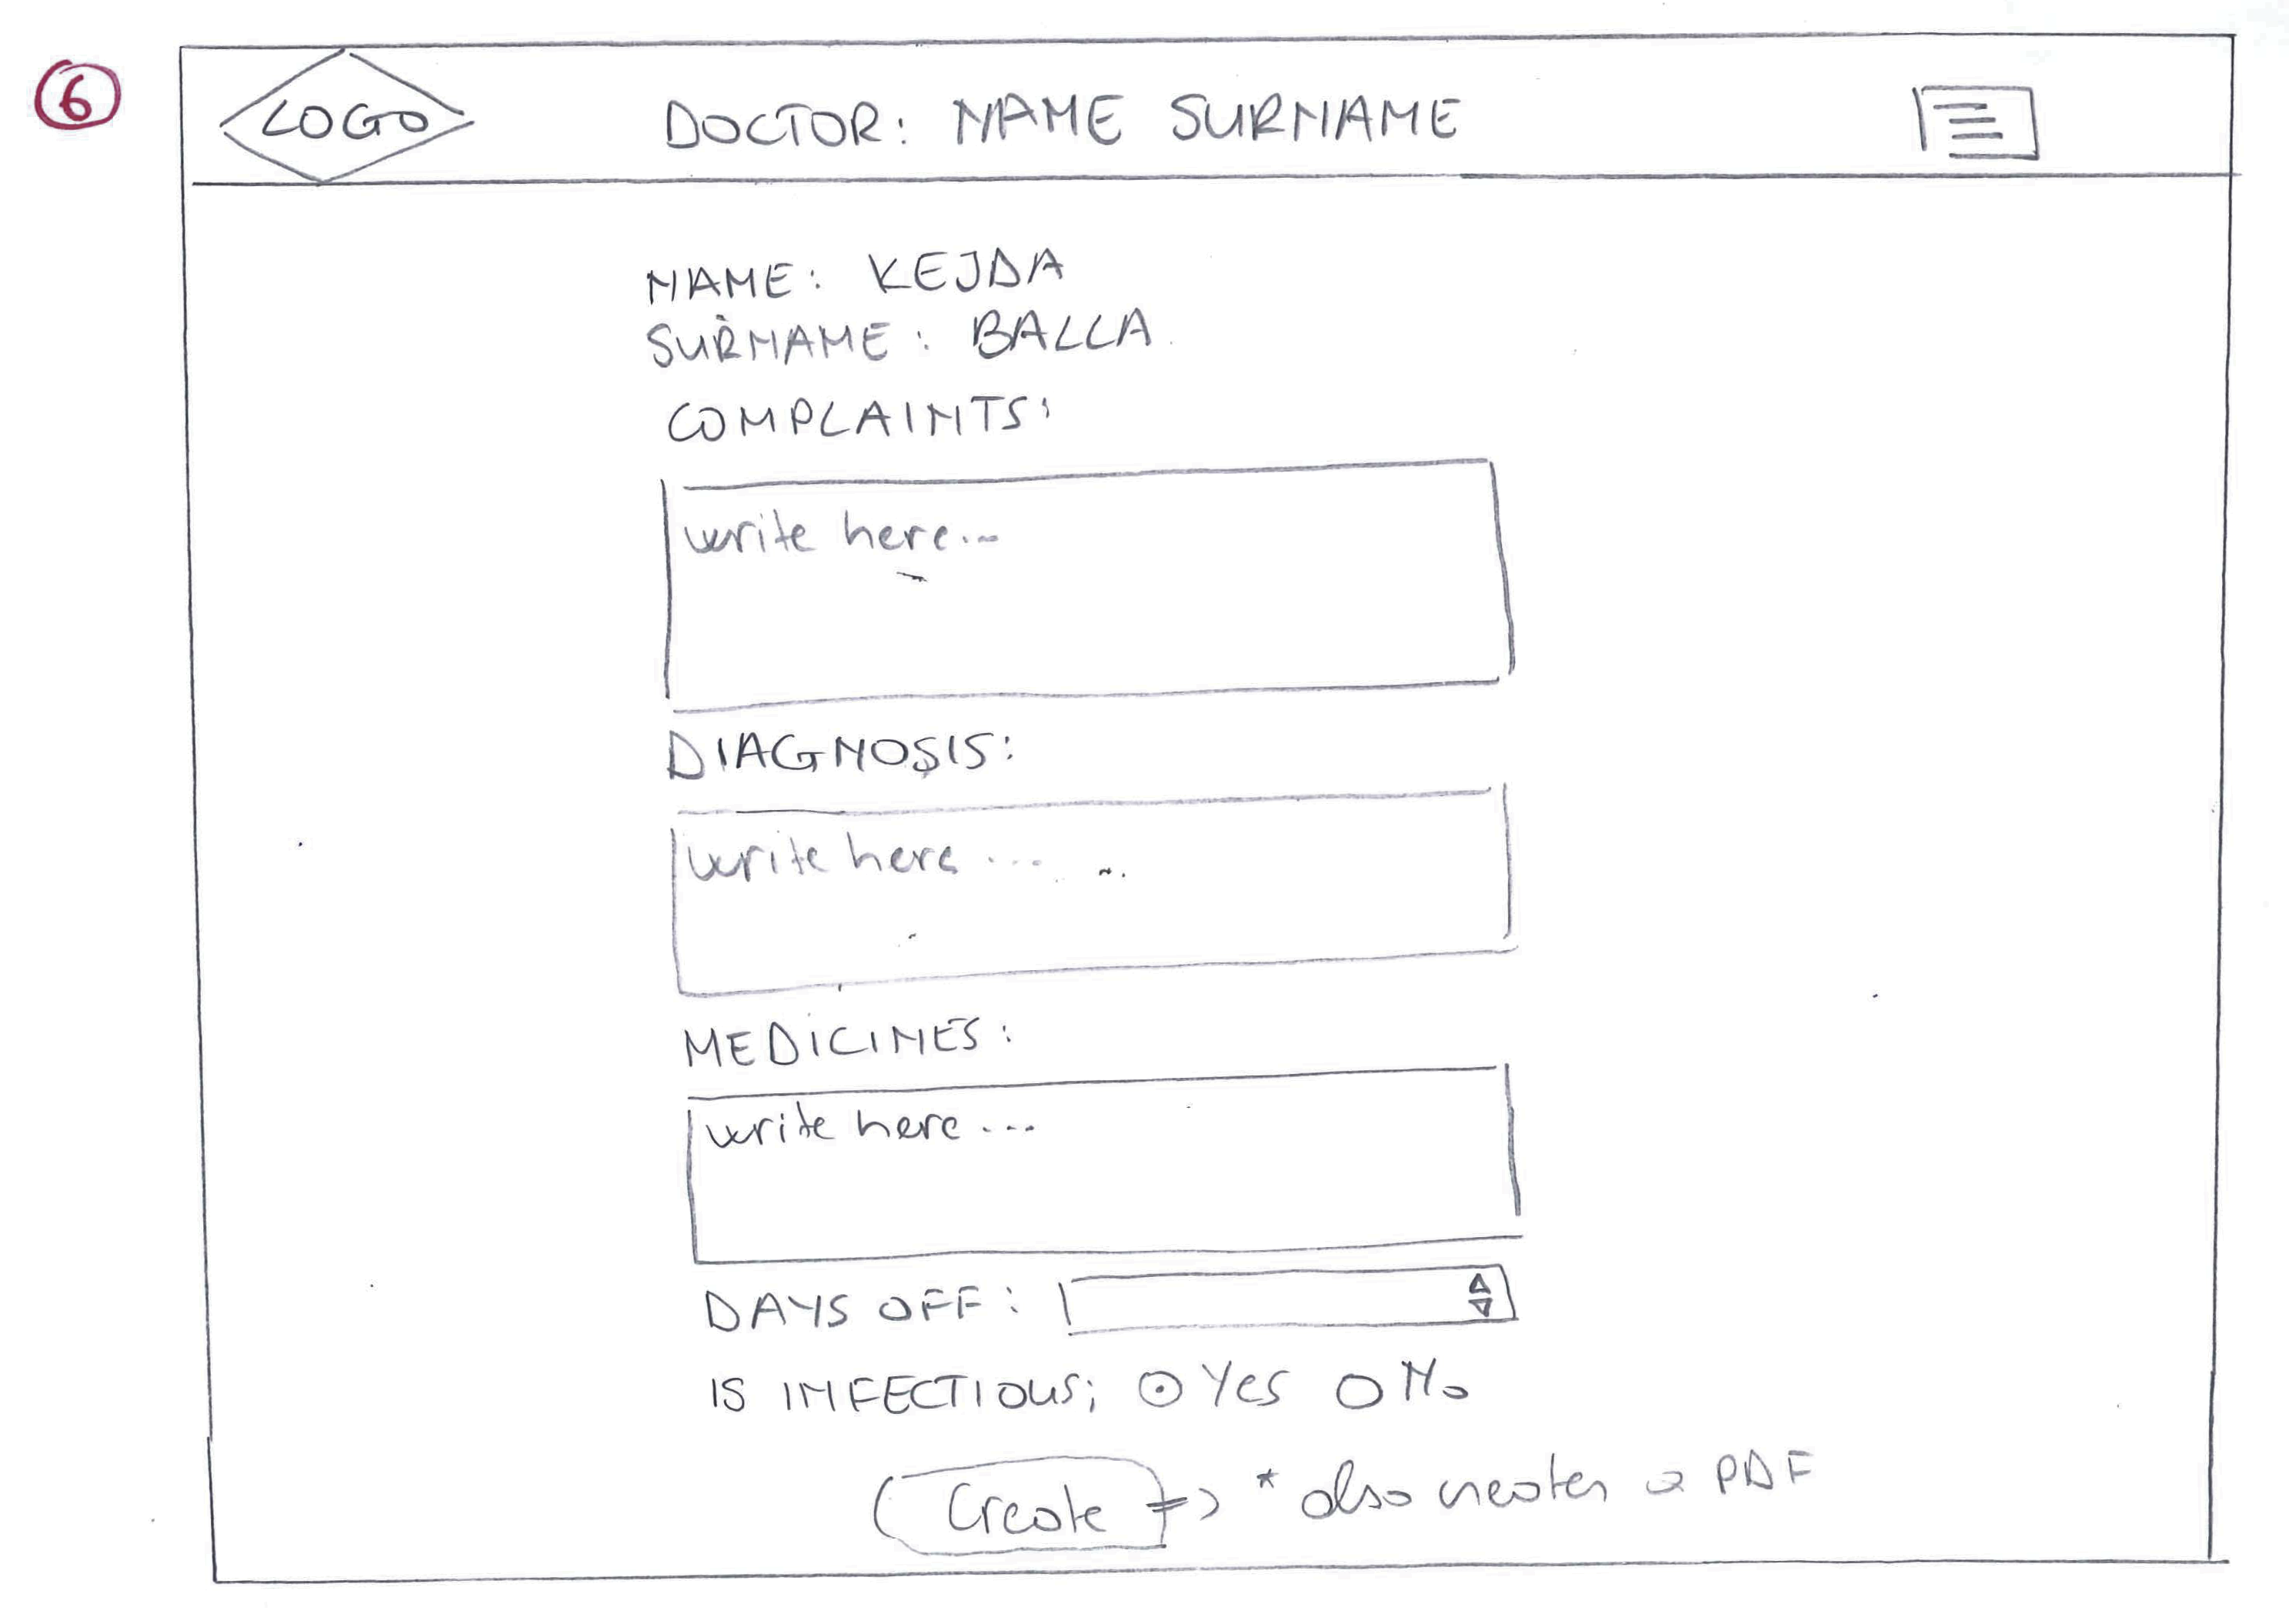 6
LOGO DOCTOR: NAME SURNAME
NAME: KEJDA
SURNAME: BALLA
COMPLAINTS:
write here...
DIAGNOSIS:
write here...
MEDICINES:
write here...
DAYS OFF:
IS INFECTIOUS; Yes No
Create => * also creates a PDF